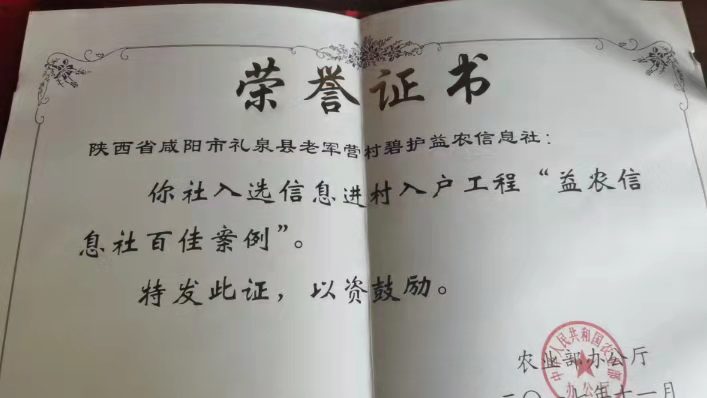 荣誉证书
陕西省咸阳市礼泉县老军营村碧护益农信息社：
你社入选信息进村入户工程“益农信
息社百佳案例”。
特发此证，以资鼓励。
农业部办公厅